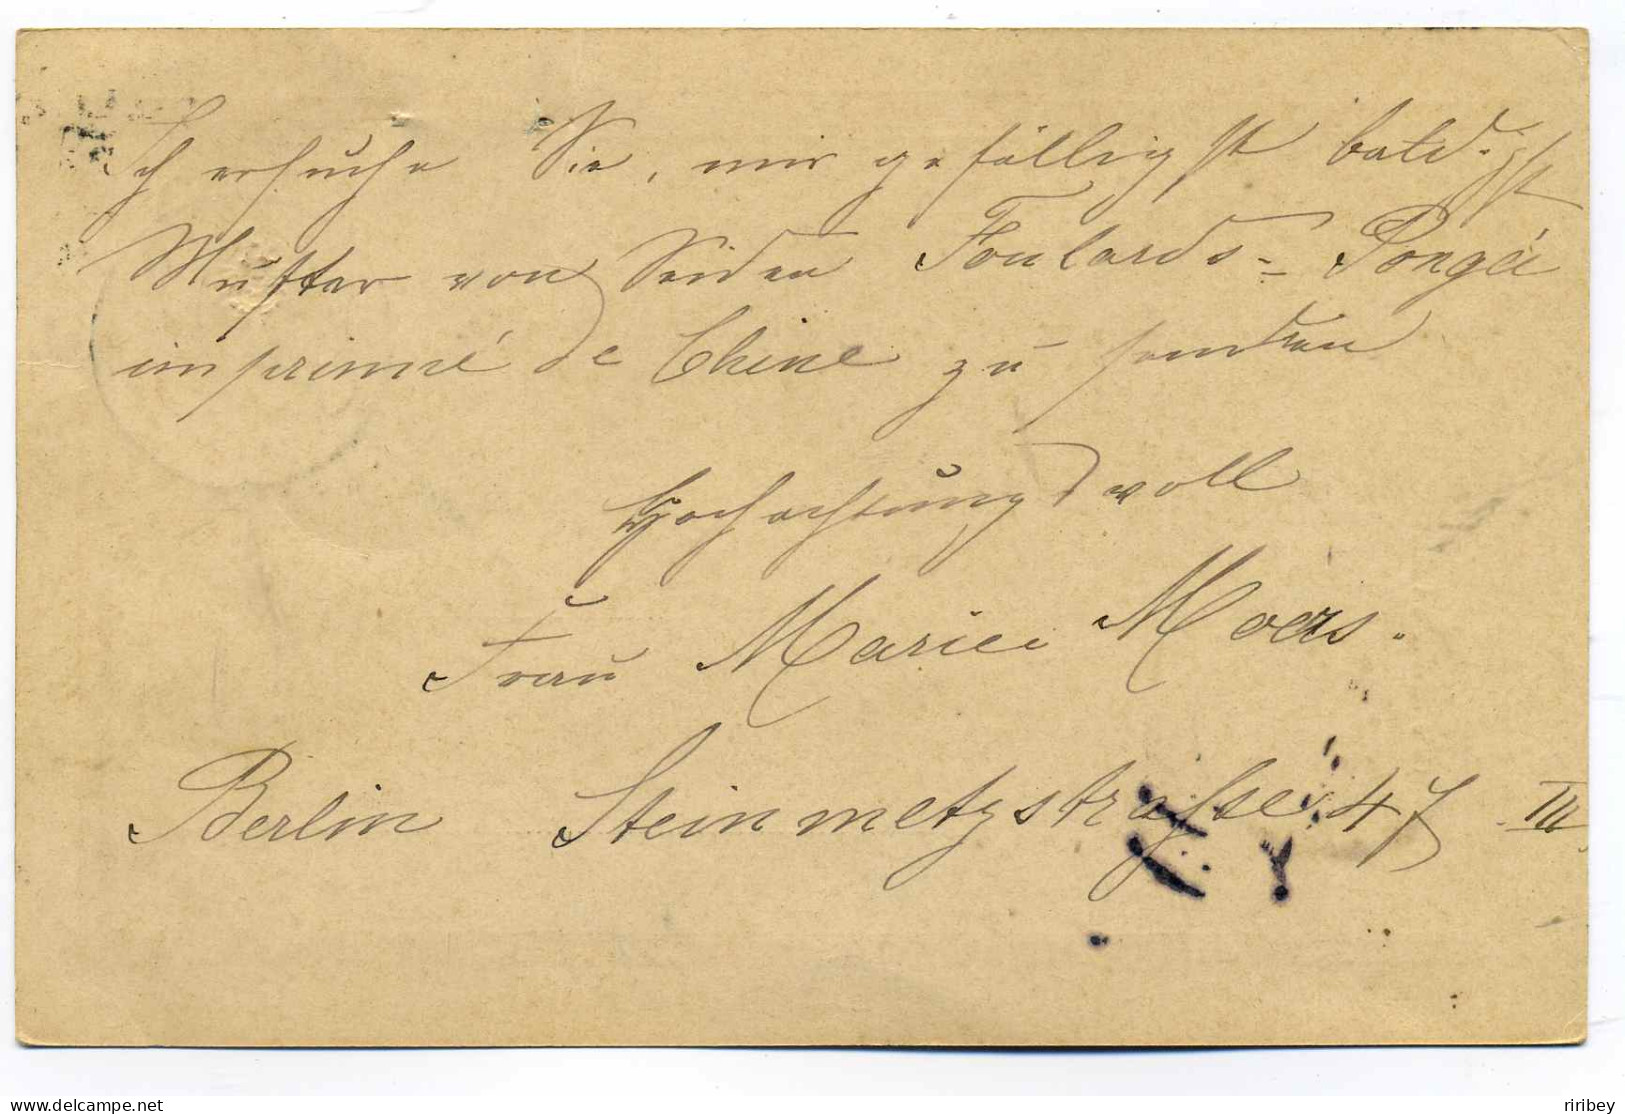 Ich ersuche Sie, mir gefälligst baldigst
Muster von Seiden Foulards- Pongée
imprimé de Chine zu senden
Hochachtungsvoll
Frau Marie
Berlin Steinmetzstraße 47 III
riribey